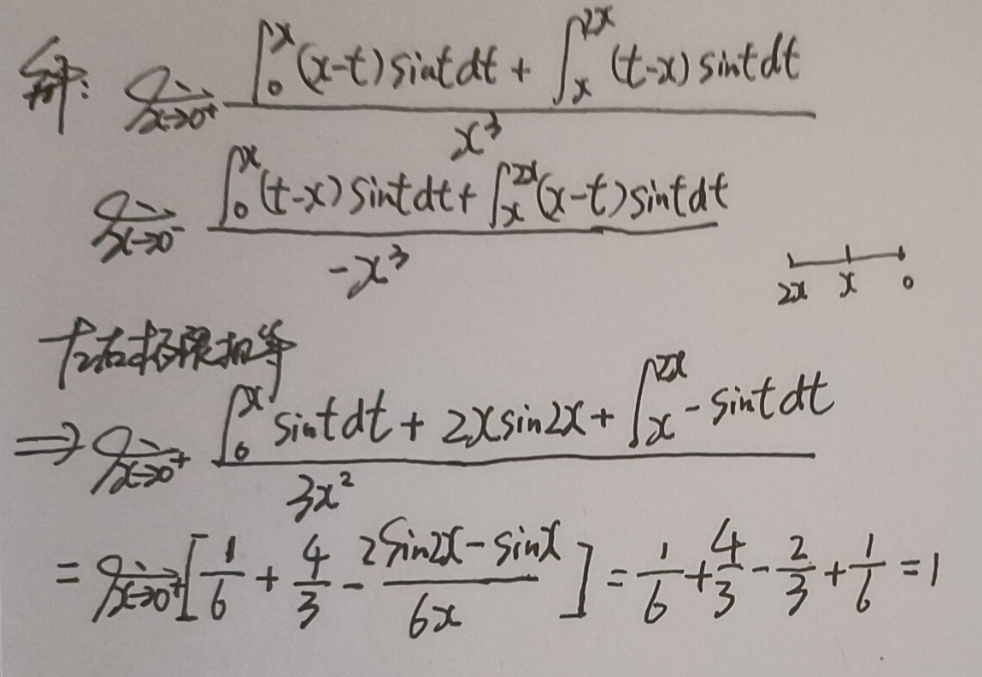 解: lim x→0⁺ (∫₀ˣ (x-t) sint dt + ∫ₓ²ˣ (t-x) sint dt) / x³
lim x→0⁻ (∫₀ˣ (t-x) sint dt + ∫ₓ²ˣ (x-t) sint dt) / -x³
2x x 0
左右极限相等
⇒ lim x→0⁺ (∫₀ˣ sint dt + 2x sin2x + ∫ₓ²ˣ - sint dt) / 3x²
= lim x→0⁺ [1/6 + 4/3 - (2sin2x - sinx) / 6x] = 1/6 + 4/3 - 2/3 + 1/6 = 1